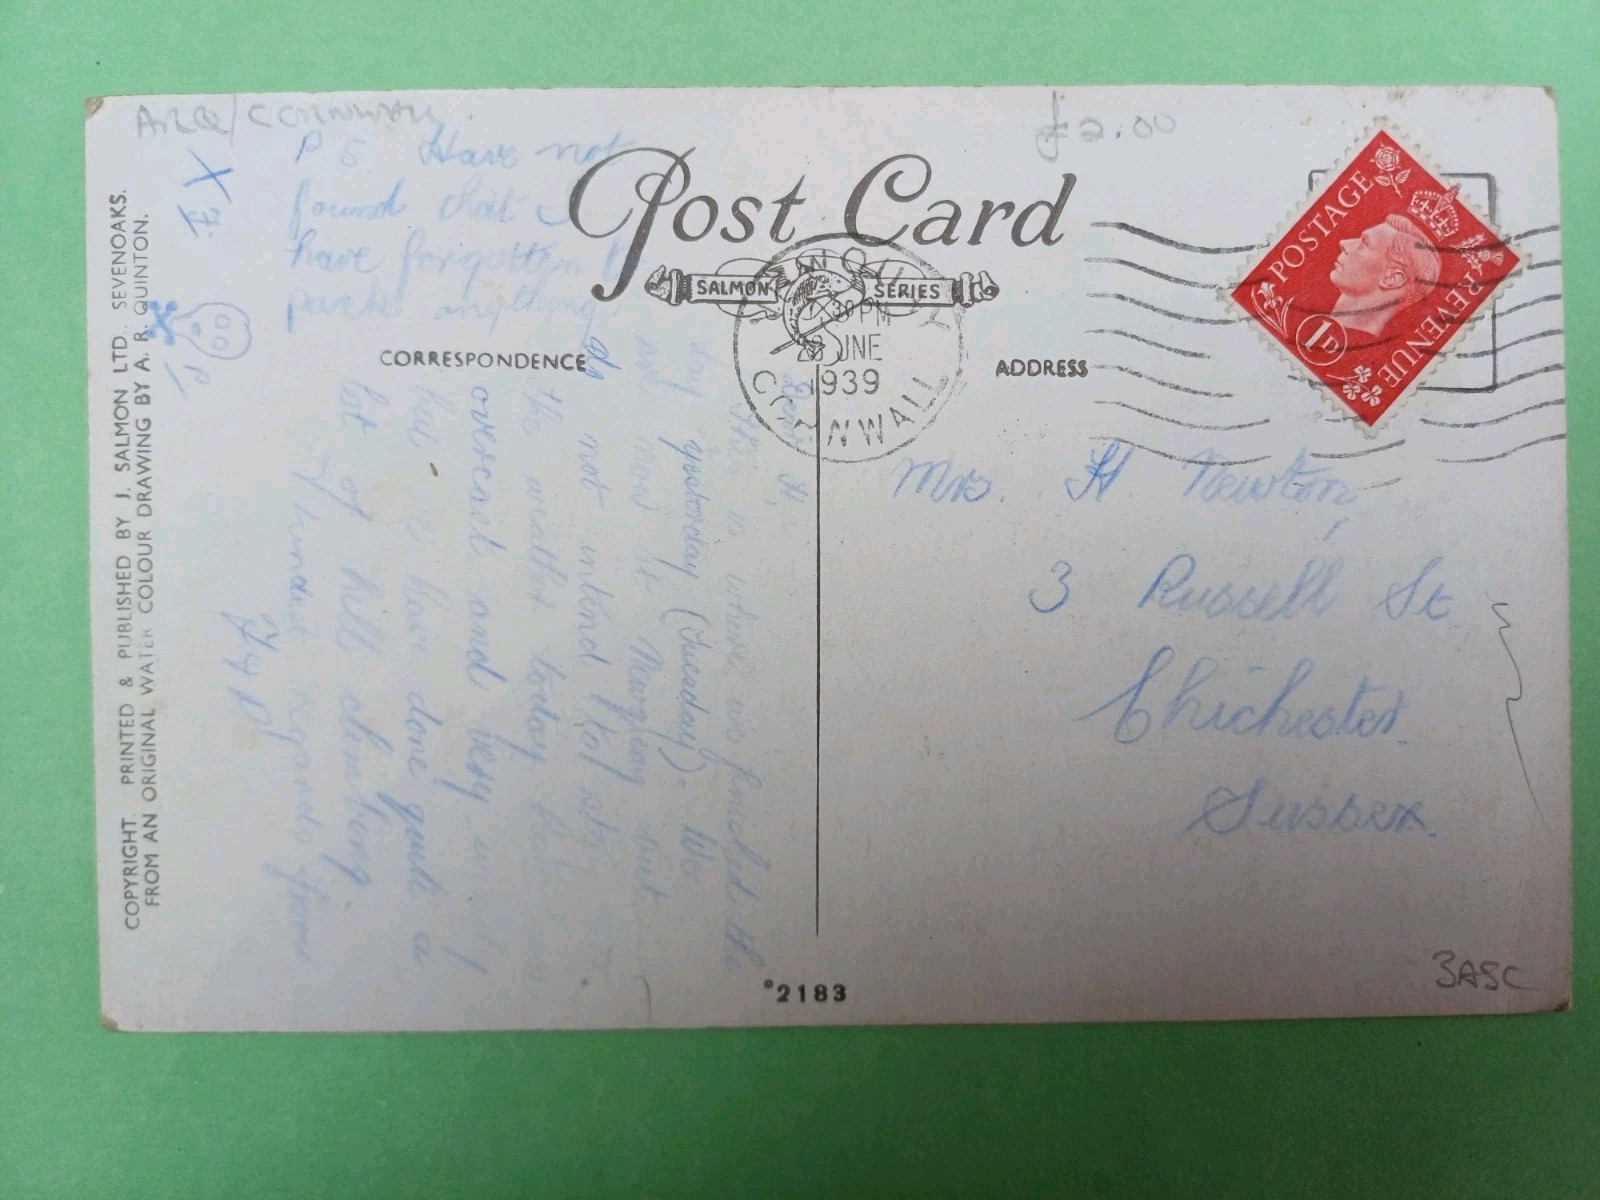 ARQ/CORNWALL.
£2.00
P.S. Have not
found that I
have forgotten to
pack anything
Post Card
SALMON SERIES
CORRESPONDENCE
ADDRESS
POSTAGE REVENUE
1D
30 PM
28 JNE
1939
CORNWALL
Dear H,
This is where we finished the
day yesterday (Tuesday). We
are now at Newquay but
do not intend
the weather today
overcast and very
but we have done quite a
lot of hill climbing
Kindest regards from
Mrs. H Newton,
3 Russell St.
Chichester.
Sussex.
COPYRIGHT. PRINTED & PUBLISHED BY J. SALMON LTD. SEVENOAKS.
FROM AN ORIGINAL WATER COLOUR DRAWING BY A. R. QUINTON.
*2183
3ASC